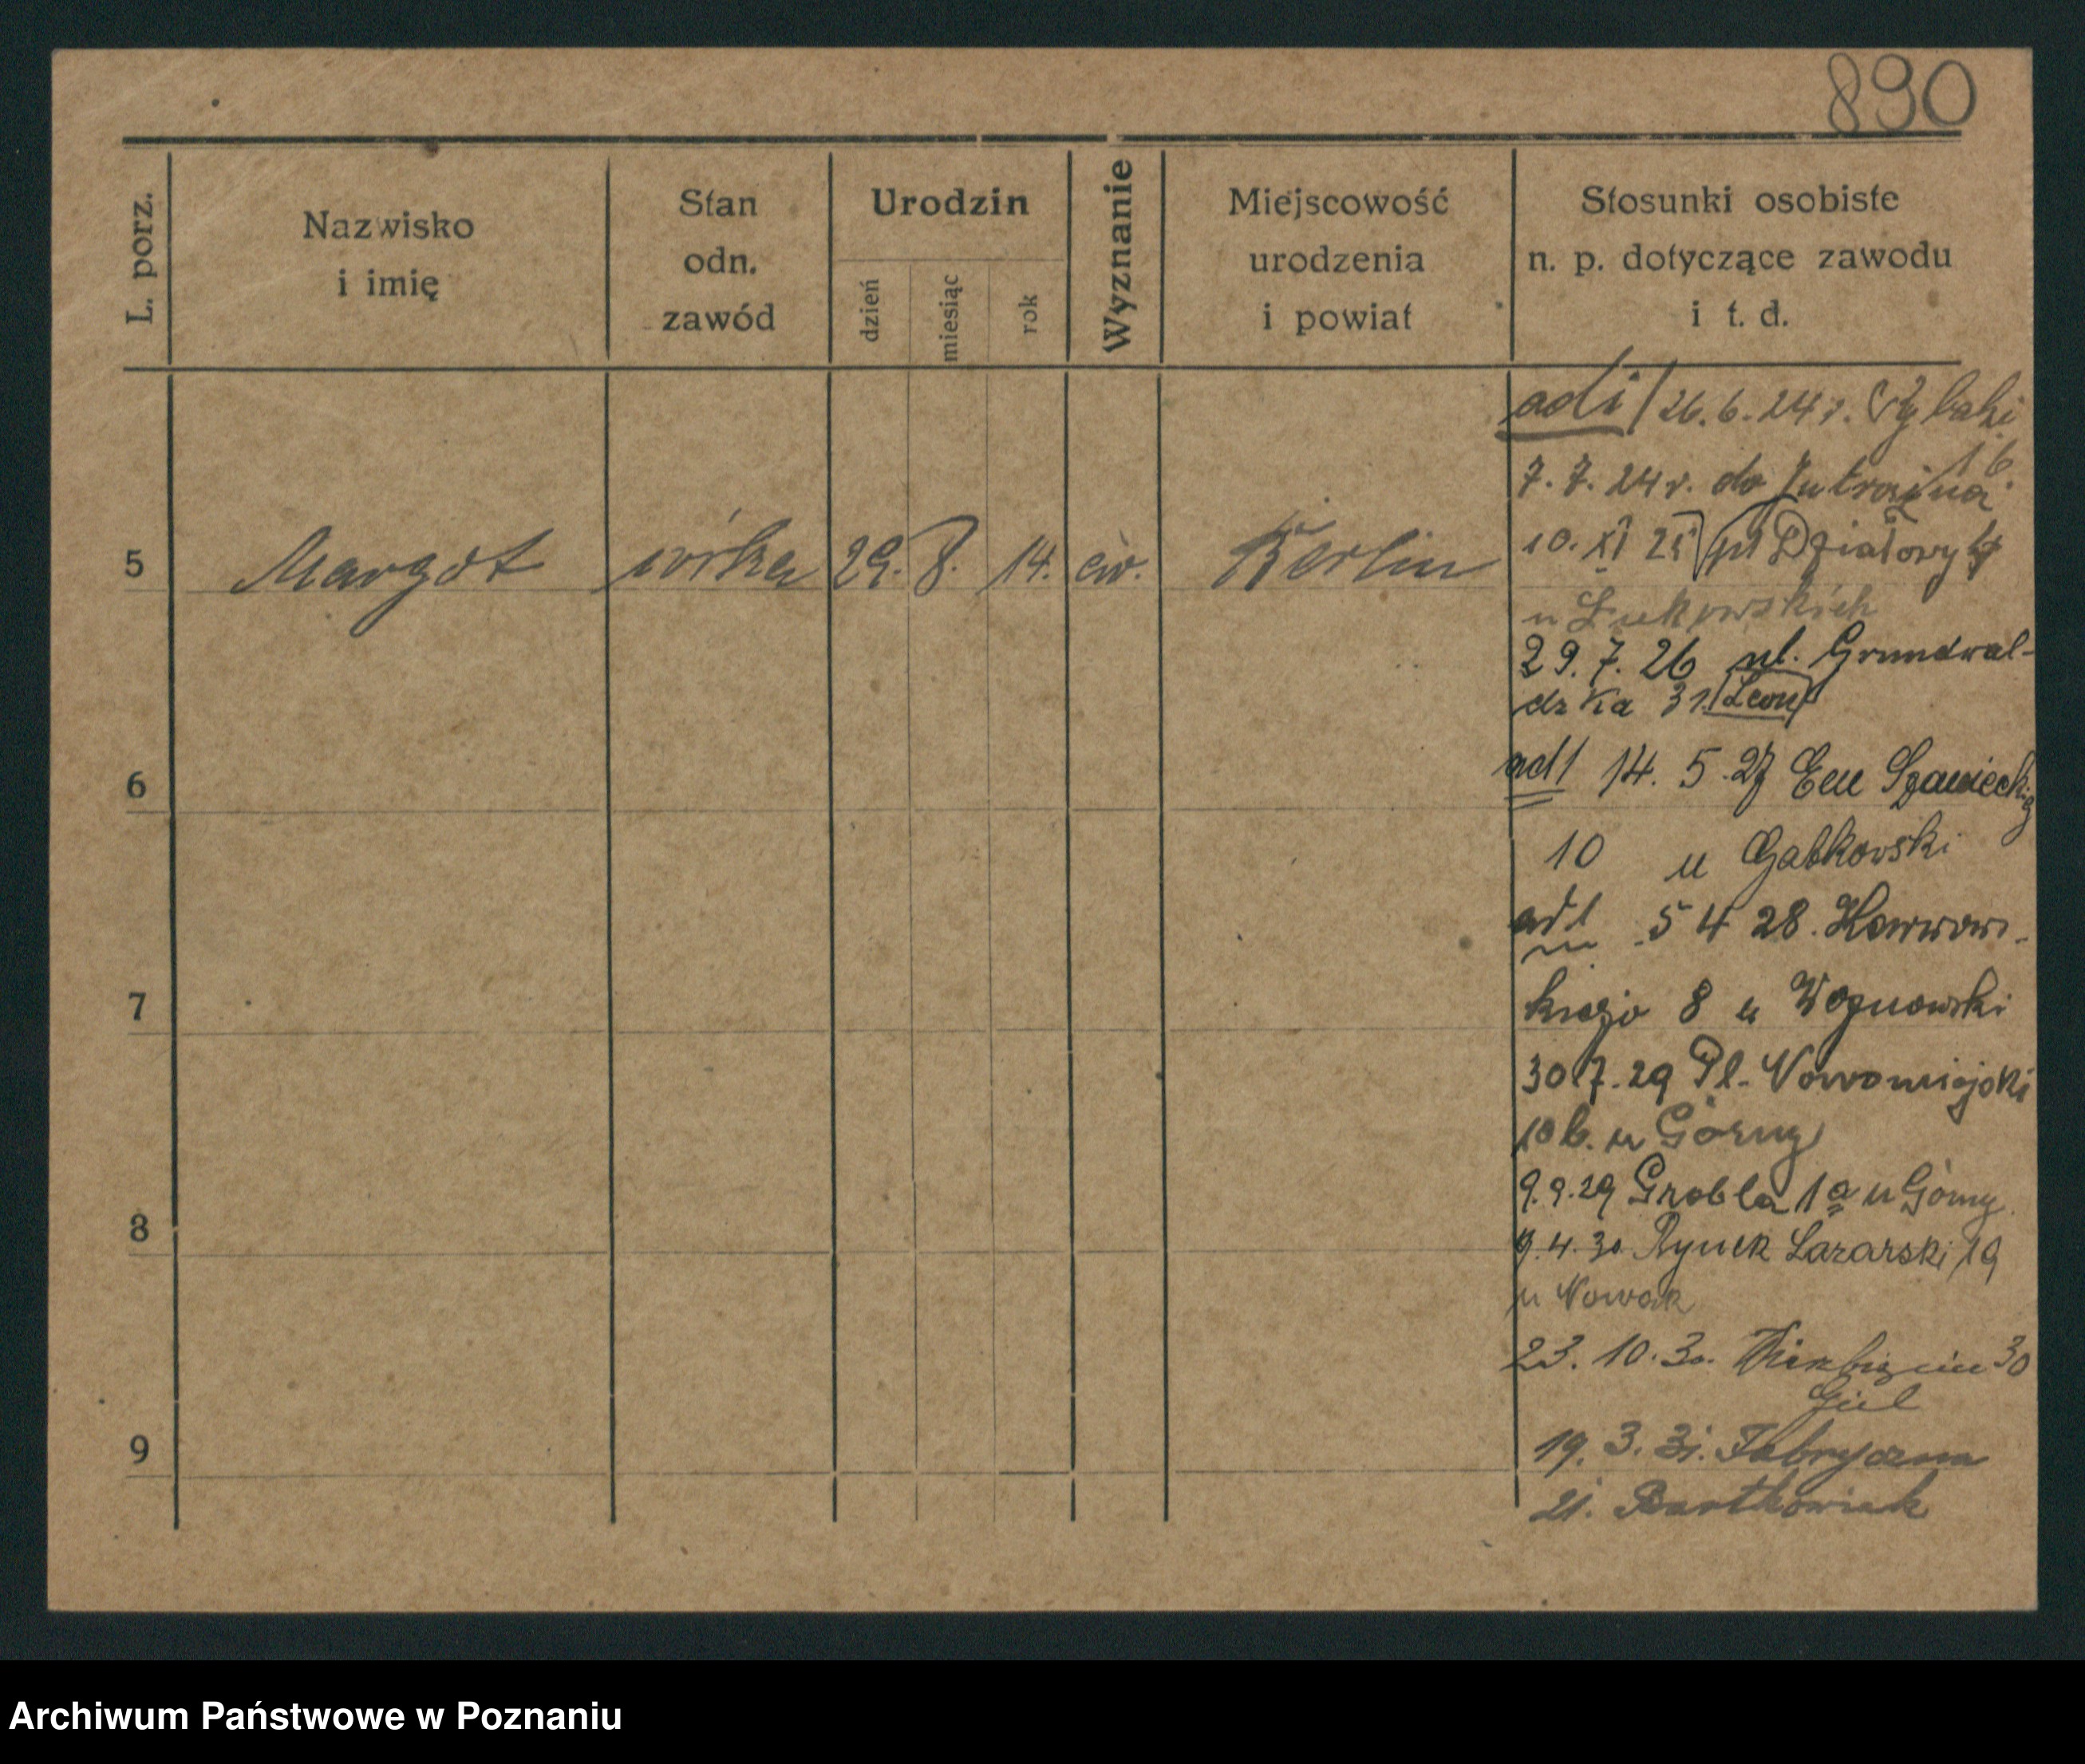 890
L. porz.
Nazwisko
i imię
Stan
odn.
zawód
Urodzin
dzień
miesiąc
rok
Wyznanie
Miejscowość
urodzenia
i powiat
Stosunki osobiste
n. p. dotyczące zawodu
i t. d.
5 Margot córka 29. 8. 14. ew. Berlin
6
7
8
9
ad1/26.6.24 r. Rybaki
16
7.7.24 r. do Jutrosina
10.XI 25 pl Działowy 4
u Łukowskich
29.7.26 ul. Grunwal-
dzka 31. Leon
ad1 14. 5.27 Em Szanieckiej
10 u Gabkowski
ad1 5 4 28.
8 u Woznowski
30.7.29 Pl. Nowomiejski
10 b. u Górny
9.9.29 Grobla 1a u Górny.
9.4.30 Rynek Łazarski 19
u Nowak
23. 10. 30. 30
19. 3. 31. Fabryczna
21. Bartkowiak
Archiwum Państwowe w Poznaniu